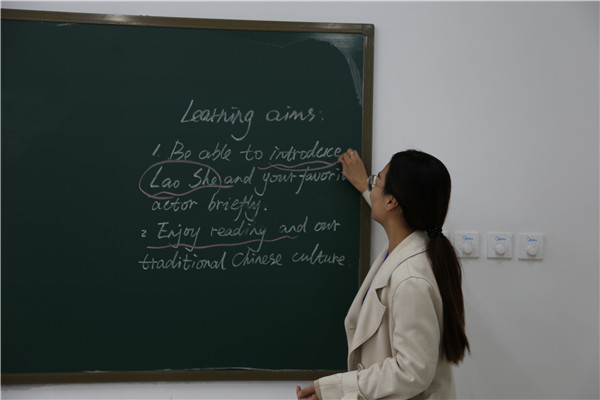 Learning aims:
1. Be able to introduce
Lao She and your favorit
actor briefly.
2 Enjoy reading and our
traditional Chinese culture.